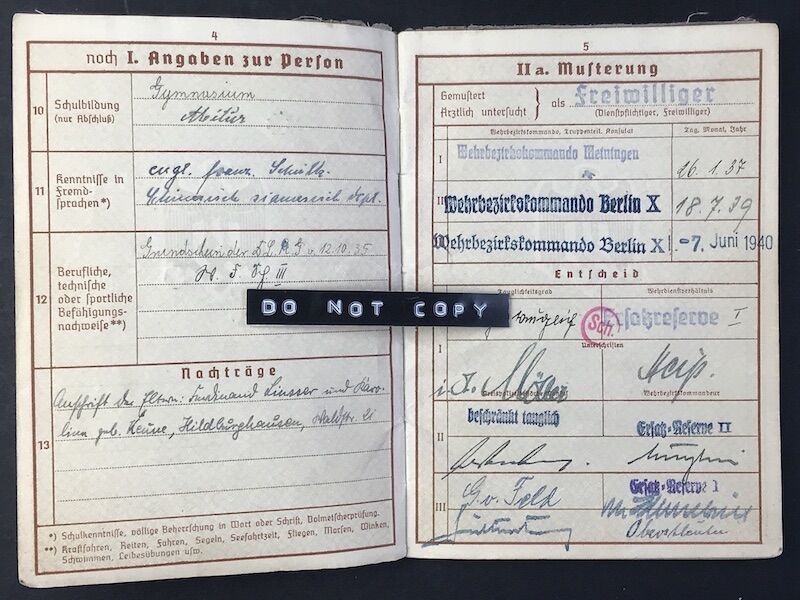 4
noch I. Angaben zur Person
10 Schulbildung
(nur Abschluß)
Gymnasium
Abitur
11 Kenntnisse in
Fremd-
sprachen*)
engl. franz. Schulk.
Chinesisch siamesisch
12 Berufliche,
technische
oder sportliche
Befähigungs-
nachweise**)
Grundschein der D L R G v. 12.10.35
III
Nachträge
13
Anschrift der Eltern: Ferdinand Linsser und Karo-
lina geb. Keune, Hildburghausen, Waldstr.
*) Schulkenntnisse, völlige Beherrschung in Wort oder Schrift, Dolmetscherprüfung.
**) Kraftfahren, Reiten, Fahren, Segeln, Seefahrtzeit, Fliegen, Morsen, Winken,
Schwimmen, Leibesübungen usw.
DO NOT COPY
5
IIa. Musterung
Gemustert
Ärztlich untersucht } als Freiwilliger
(Dienstpflichtiger, Freiwilliger)
Wehrbezirkskommando, Truppenteil, Konsulat
Tag, Monat, Jahr
I Wehrbezirkskommando Meiningen
26.1.37
II Wehrbezirkskommando Berlin X 18.7.39
Wehrbezirkskommando Berlin X -7. Juni 1940
Entscheid
Tauglichkeitsgrad
Wehrdienstverhältnis
Sch.
Ersatzreserve I
Unterschriften
I
i.V.
Wehrbezirkskommandeur
beschränkt tauglich
II
Ersatz-Reserve II
Ersatz-Reserve I
III
G.v. Feld
Oberstleutn